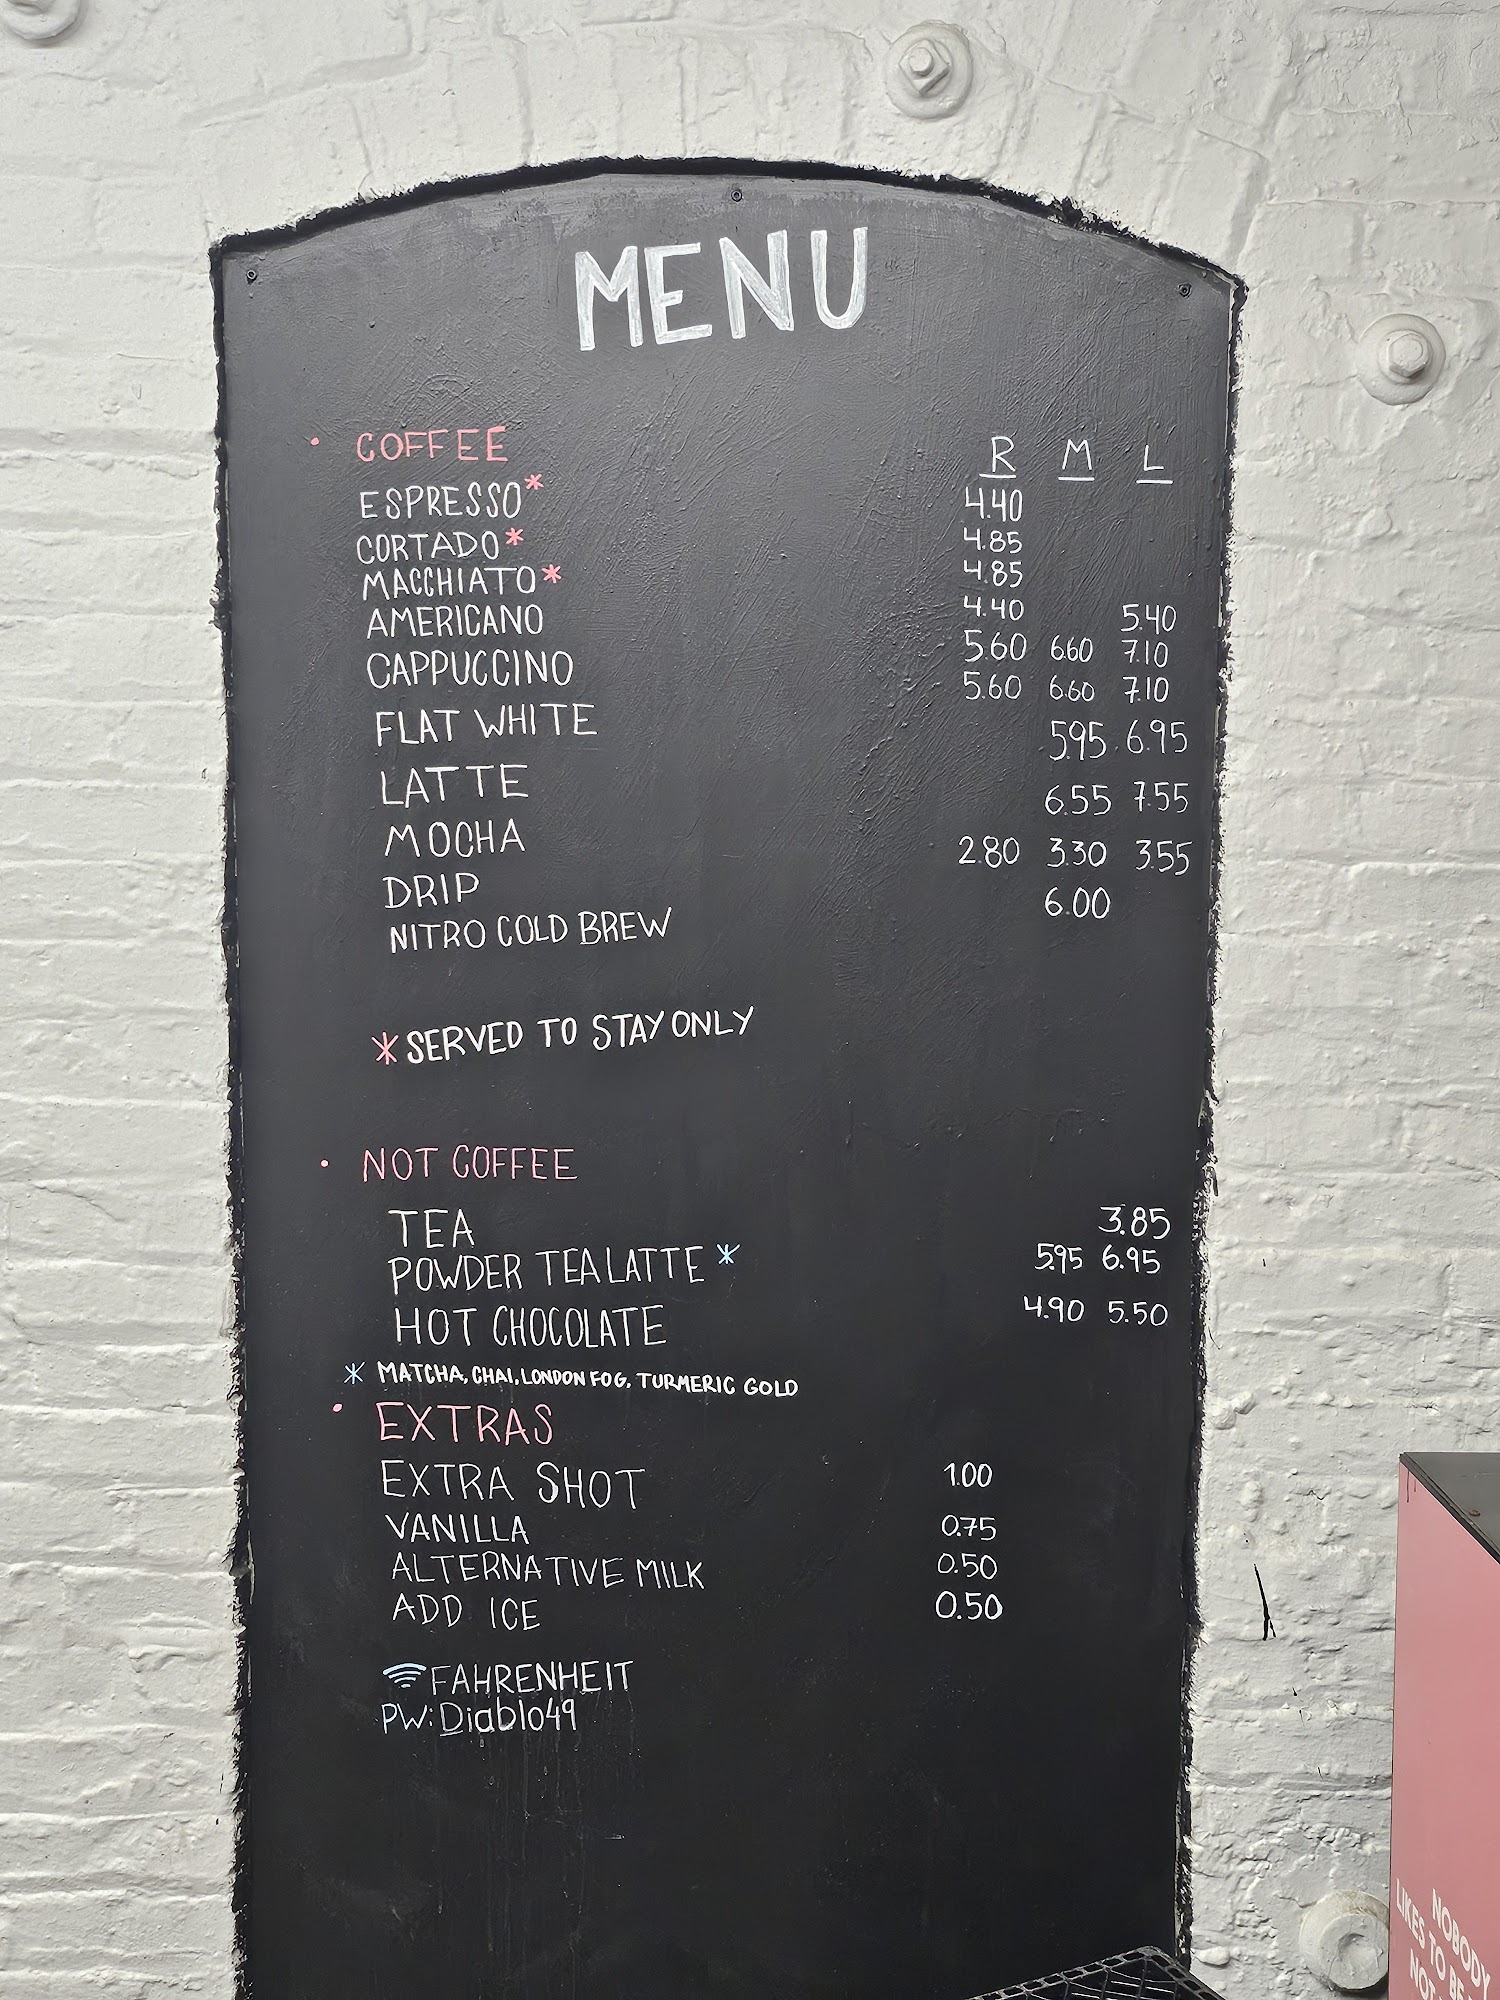 MENU
• COFFEE R M L
ESPRESSO* 4.40
CORTADO* 4.85
MACCHIATO* 4.85
AMERICANO 4.40 5.40
CAPPUCCINO 5.60 6.60 7.10
FLAT WHITE 5.60 6.60 7.10
LATTE 5.95 6.95
MOCHA 6.55 7.55
DRIP 2.80 3.30 3.55
NITRO COLD BREW 6.00
*SERVED TO STAY ONLY
• NOT COFFEE
TEA 3.85
POWDER TEA LATTE * 5.95 6.95
HOT CHOCOLATE 4.90 5.50
* MATCHA, CHAI, LONDON FOG, TURMERIC GOLD
• EXTRAS
EXTRA SHOT 1.00
VANILLA 0.75
ALTERNATIVE MILK 0.50
ADD ICE 0.50
FAHRENHEIT
PW: Diablo49
NOBODY
LIKES TO BE
NOT